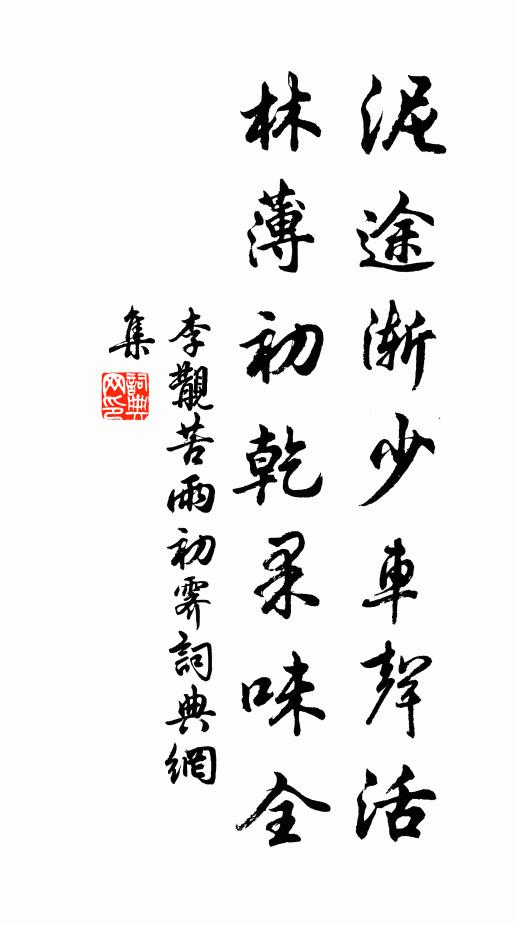 泥途渐少車聲活
林薄初乾果味全
李觀苦雨初霽詞典網
集
詞典
网印